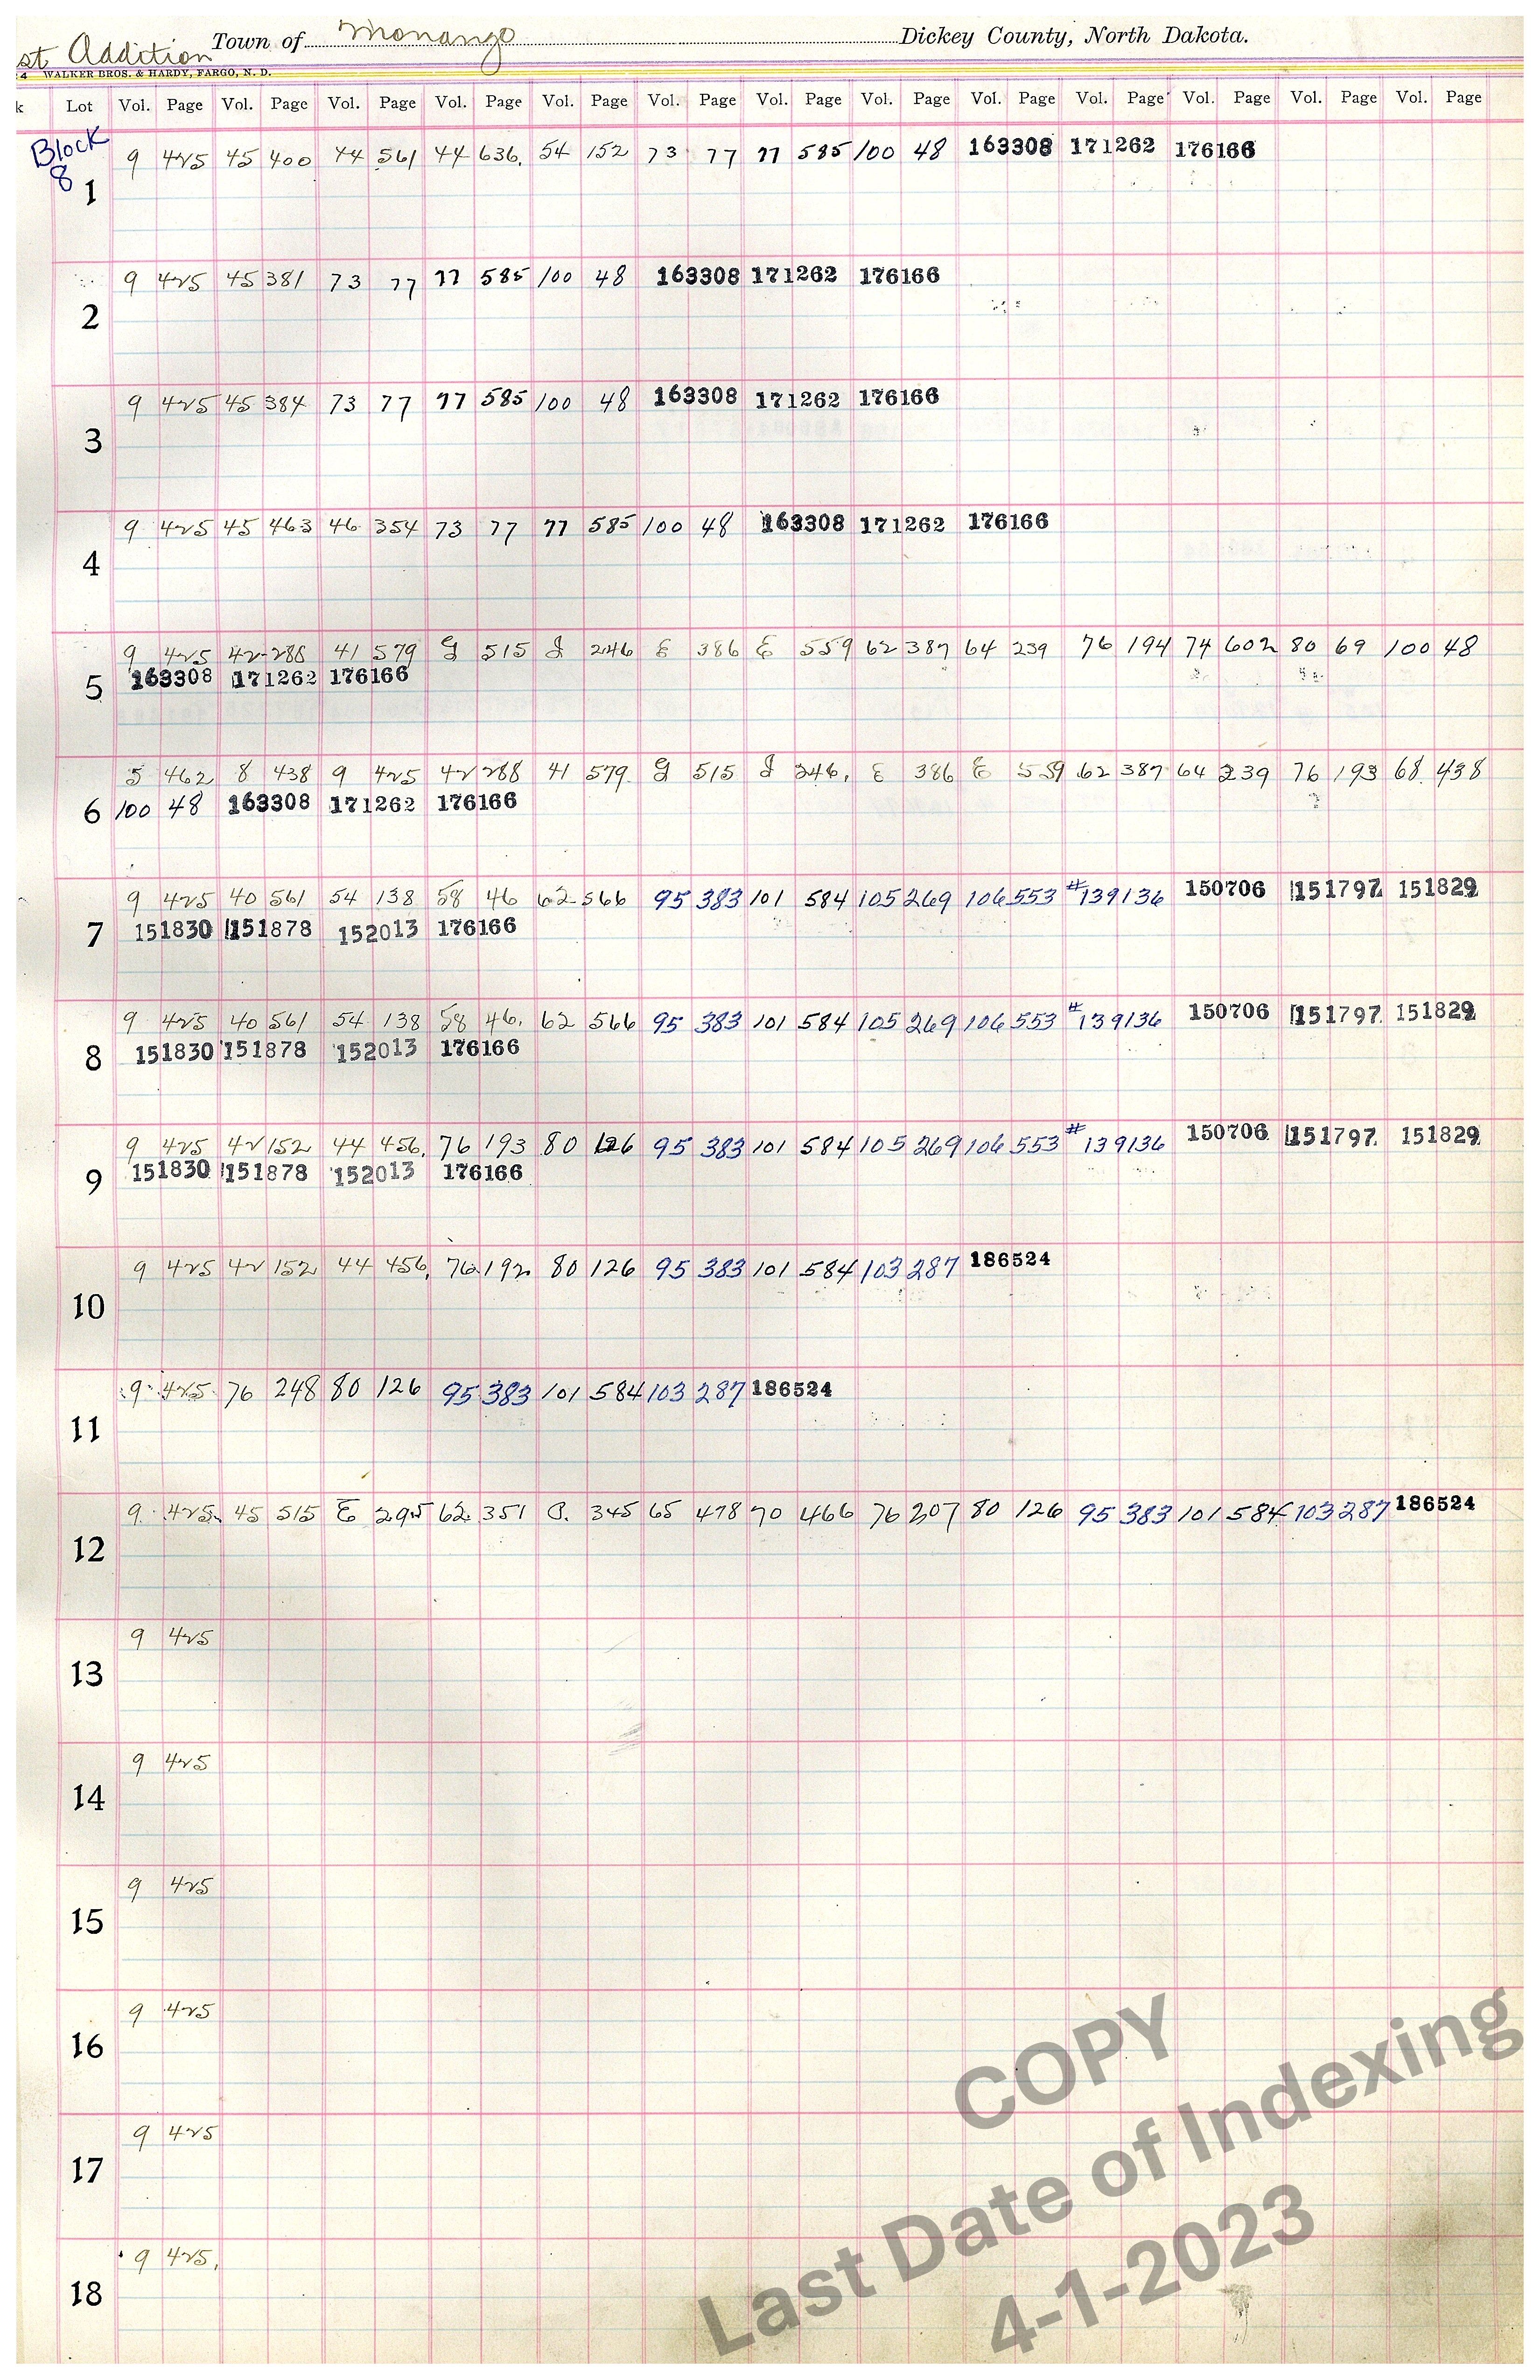 st Addition Town of Monango Dickey County, North Dakota.
4 WALKER BROS. & HARDY, FARGO, N. D.
k Lot Vol. Page Vol. Page Vol. Page Vol. Page Vol. Page Vol. Page Vol. Page Vol. Page Vol. Page Vol. Page Vol. Page Vol. Page Vol. Page
Block 8
1 9 425 45 400 44 561 44 636. 54 152 73 77 77 585 100 48 163308 171262 176166
2 9 425 45 381 73 77 77 585 100 48 163308 171262 176166
3 9 425 45 384 73 77 77 585 100 48 163308 171262 176166
4 9 425 45 463 46 354 73 77 77 585 100 48 163308 171262 176166
9 425 42 288 41 579 G 515 J 246 E 386 E 559 62 387 64 239 76 194 74 602 80 69 100 48
5 163308 171262 176166
5 462 8 438 9 425 42 288 41 579 G 515 J 246. E 386 E 559 62 387 64 239 76 193 68 438
6 100 48 163308 171262 176166
9 425 40 561 54 138 58 46 62 566 95 383 101 584 105 269 106 553 #139136 150706 151797 151829
7 151830 151878 152013 176166
9 425 40 561 54 138 58 46. 62 566 95 383 101 584 105 269 106 553 #139136 150706 151797 151829
8 151830 151878 152013 176166
9 425 42 152 44 456. 76 193 80 126 95 383 101 584 105 269 106 553 #139136 150706 151797 151829
9 151830 151878 152013 176166
10 9 425 42 152 44 456. 76 192 80 126 95 383 101 584 103 287 186524
11 9 425 76 248 80 126 95 383 101 584 103 287 186524
12 9 425 45 515 E 295 62 351 345 65 478 70 466 76 207 80 126 95 383 101 584 103 287 186524
13 9 425
14 9 425
15 9 425
16 9 425
17 9 425
18 9 425.
COPY
Last Date of Indexing
4-1-2023